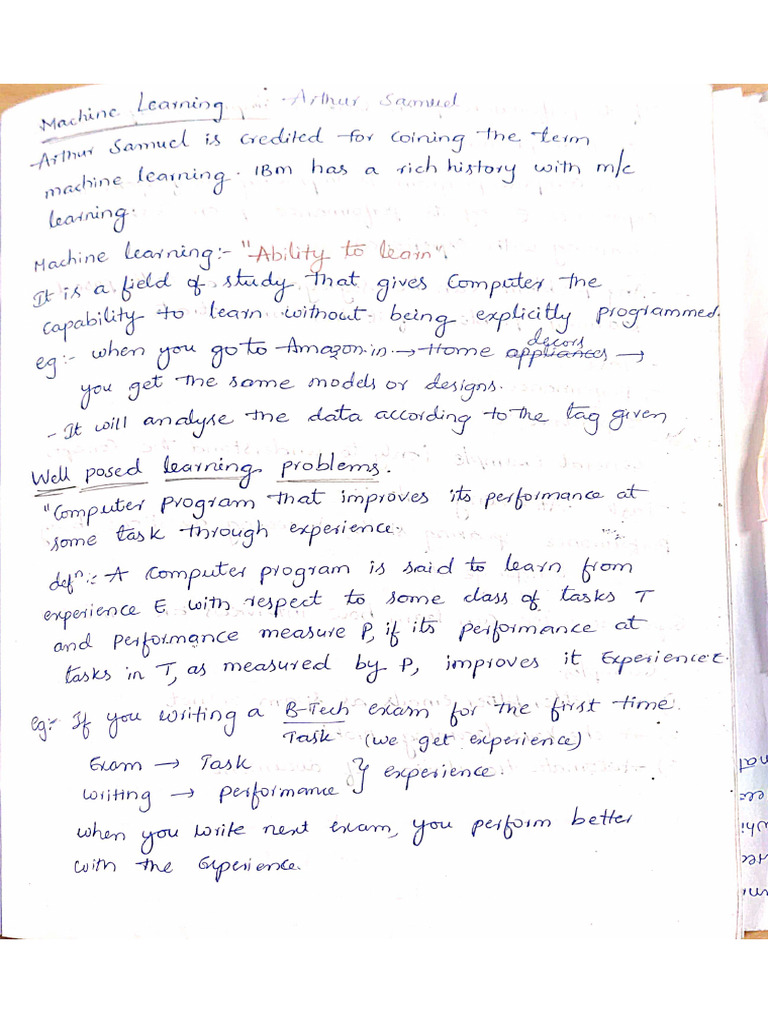 Machine Learning :- Arthur Samuel
Arthur Samuel is credited for coining the term
machine learning. IBM has a rich history with m/c
learning.
Machine learning:- "Ability to learn".
It is a field of study that gives Computer the
capability to learn without being explicitly programmed.
decors
eg:- when you go to Amazon.in → Home appliances →
you get the same models or designs.
- It will analyse the data according to the tag given
Well posed learning problems.
"Computer program that improves its performance at
some task through experience.
defn:- A computer program is said to learn from
experience E with respect to some class of tasks T
and performance measure P, if its performance at
tasks in T, as measured by P, improves it Experience E.
eg:- If you writing a B-Tech exam for the first time.
Task (we get experience)
Exam → Task
writing → performance } experience
when you write next exam, you perform better
with the Experience.